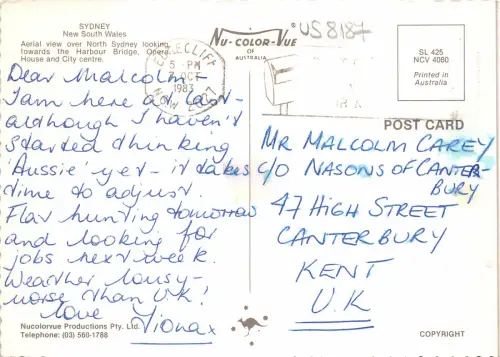 SYDNEY
New South Wales
Aerial view over North Sydney looking
towards the Harbour Bridge, Opera
House and City centre.
Dear Malcolm –
I am here at last –
although I haven't
started thinking
'Aussie' yet – it takes
time to adjust
Flat hunting tomorrow
and looking for
jobs next week.
Weather lousy –
worse than U.K!
love
Fiona x
Nucolorvue Productions Pty. Ltd.
Telephone: (03) 560-1788
NU-COLOR-VUE
OF
AUSTRALIA
5 - PM
OCT
1983
US 8187
SL 425
NCV 4080
Printed in
Australia
POST CARD
MR MALCOLM CAREY
C/O NASONS OF CANTER-
BURY
47 HIGH STREET
CANTERBURY
KENT
U.K
COPYRIGHT